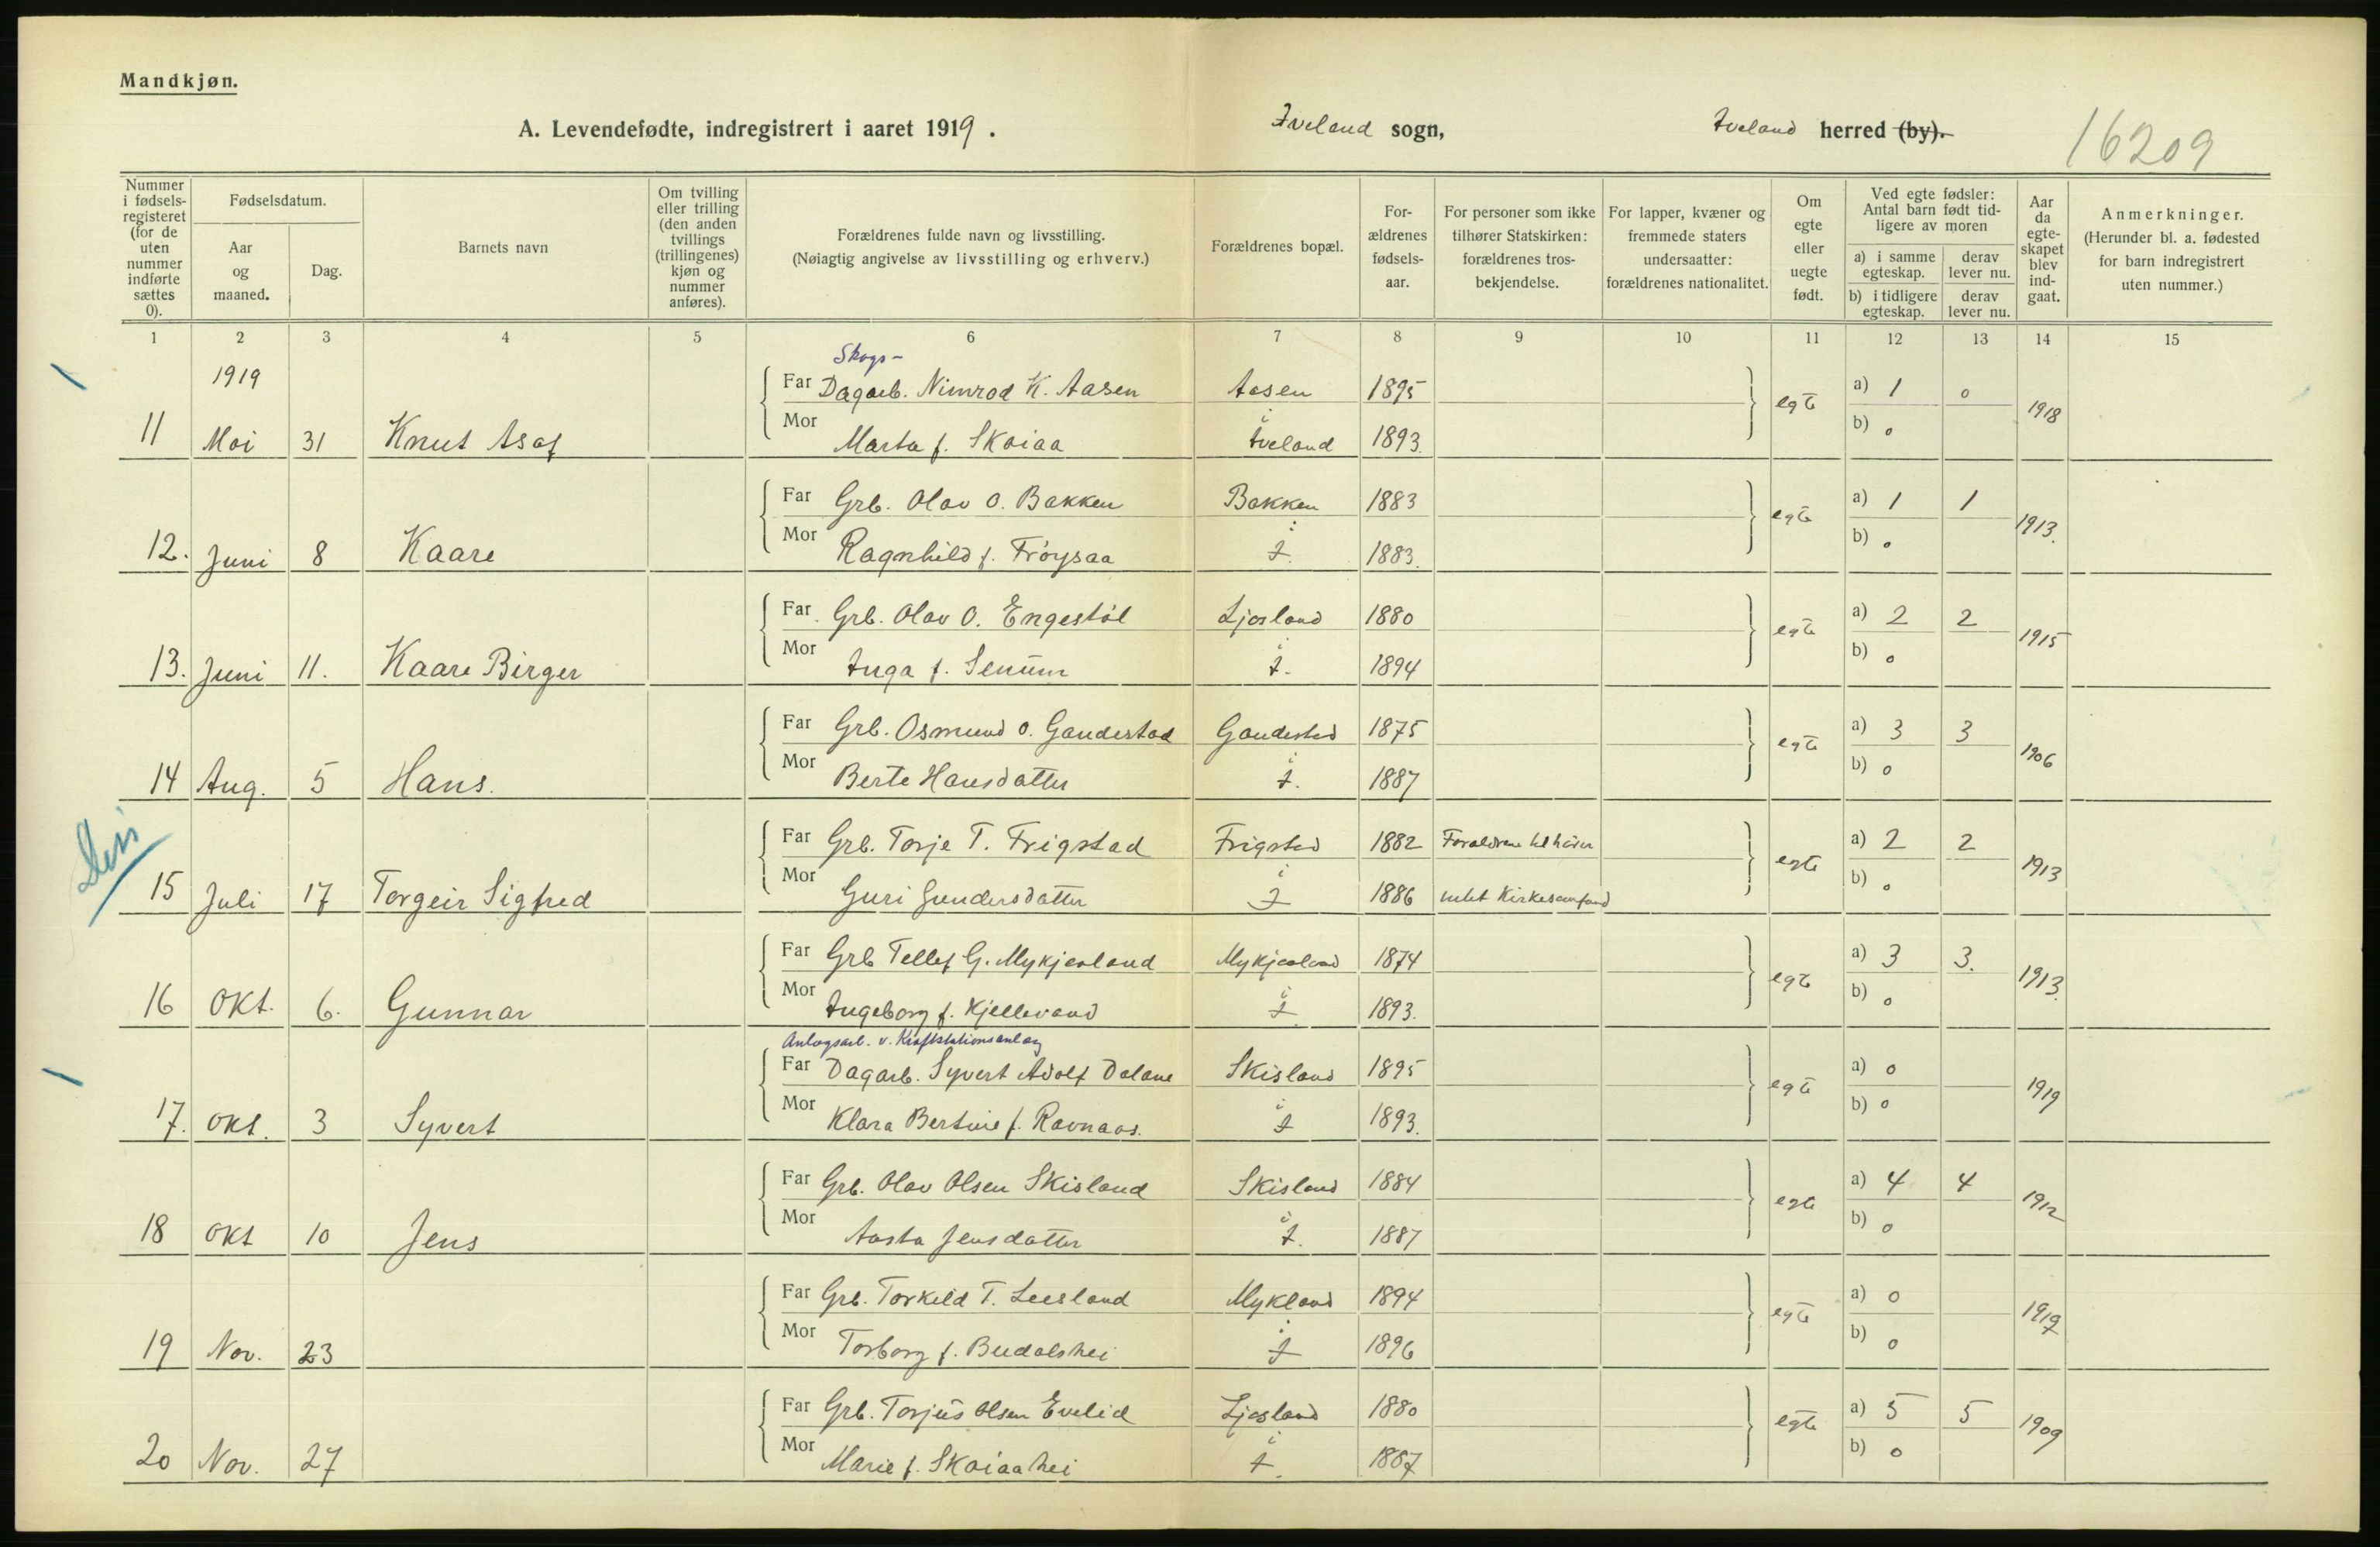 Mandkjøn.
A. Levendefødte, indregistrert i aaret 1919. Iveland sogn, Iveland herred (by).
16209
Nummer i fødsels-registeret (for de uten nummer indførte sættes 0).
Fødselsdatum.
Aar og maaned.
Dag.
Barnets navn
Om tvilling eller trilling (den anden tvillings (trillingenes) kjøn og nummer anføres).
Forældrenes fulde navn og livsstilling.
(Nøiagtig angivelse av livsstilling og erhverv.)
Forældrenes bopæl.
For-ældrenes fødsels-aar.
For personer som ikke tilhører Statskirken: forældrenes tros-bekjendelse.
For lapper, kvæner og fremmede staters undersaatter: forældrenes nationalitet.
Om egte eller uegte født.
Ved egte fødsler: Antal barn født tid-ligere av moren
a) i samme egteskap. derav lever nu.
b) i tidligere egteskap. derav lever nu.
Aar da egte-skapet blev ind-gaat.
Anmerkninger.
(Herunder bl. a. fødested for barn indregistrert uten nummer.)
1 2 3 4 5 6 7 8 9 10 11 12 13 14 15
1919
Skogs-
Far Dagarb. Nimrod K. Aasen Aasen 1895 egte a) 1 0 1918
11 Mai 31 Knut Asaf Mor Marta f. Skaiaa i Iveland 1893. b) 0
Far Grb. Olav O. Bakken Bakken 1883 egte a) 1 1 1913.
12. Juni 8 Kaare Mor Ragnhild f. Frøysaa i I. 1883. b) 0
Far Grb. Olav O. Engestøl Ljosland 1880 egte a) 2 2 1915
13. Juni 11. Kaare Birger Mor Inga f. Senum i I. 1894 b) 0
Far Grb. Osmund O. Gaudestad Gaudestad 1875 egte a) 3 3 1906
14 Aug. 5 Hans. Mor Berte Hansdatter i I. 1887 b) 0
Far Grb. Torje T. Frigstad Frigstad 1882 Forældrene tilhører egte a) 2 2 1913
15 Juli 17 Torgeir Sigfred Mor Guri Gundersdatter i I 1886 Kirkesamfund b) 0
Far Grb Tellef G. Mykjesland Mykjesland 1874 egte a) 3 3. 1913.
16 Okt. 6. Gunnar Mor Ingeborg f. Kjellevand i I. 1893. b) 0
Anlægsarb. v. Kraftstationsanlæg
Far Dagarb. Syvert Adolf Dalane Skisland 1895 egte a) 0 1919
17. Okt. 3 Syvert Mor Klara Bertine f. Ravnaas. i I 1893. b) 0
Far Grb. Olav Olsen Skisland Skisland 1884 egte a) 4 4 1912
18 Okt 10 Jens Mor Aasta Jensdatter i I. 1887 b) 0
Far Grb. Torkild T. Mykland 1894 egte a) 0 1919
19 Nov. 23 Mor Torborg f. Budalshei i I 1896 b) 0
Far Grb. Torjus Olsen Evelid Ljosland 1880 egte a) 5 5 1909
20 Nov. 27 Mor Marie f. Skaiaahei i I. 1887 b) 0